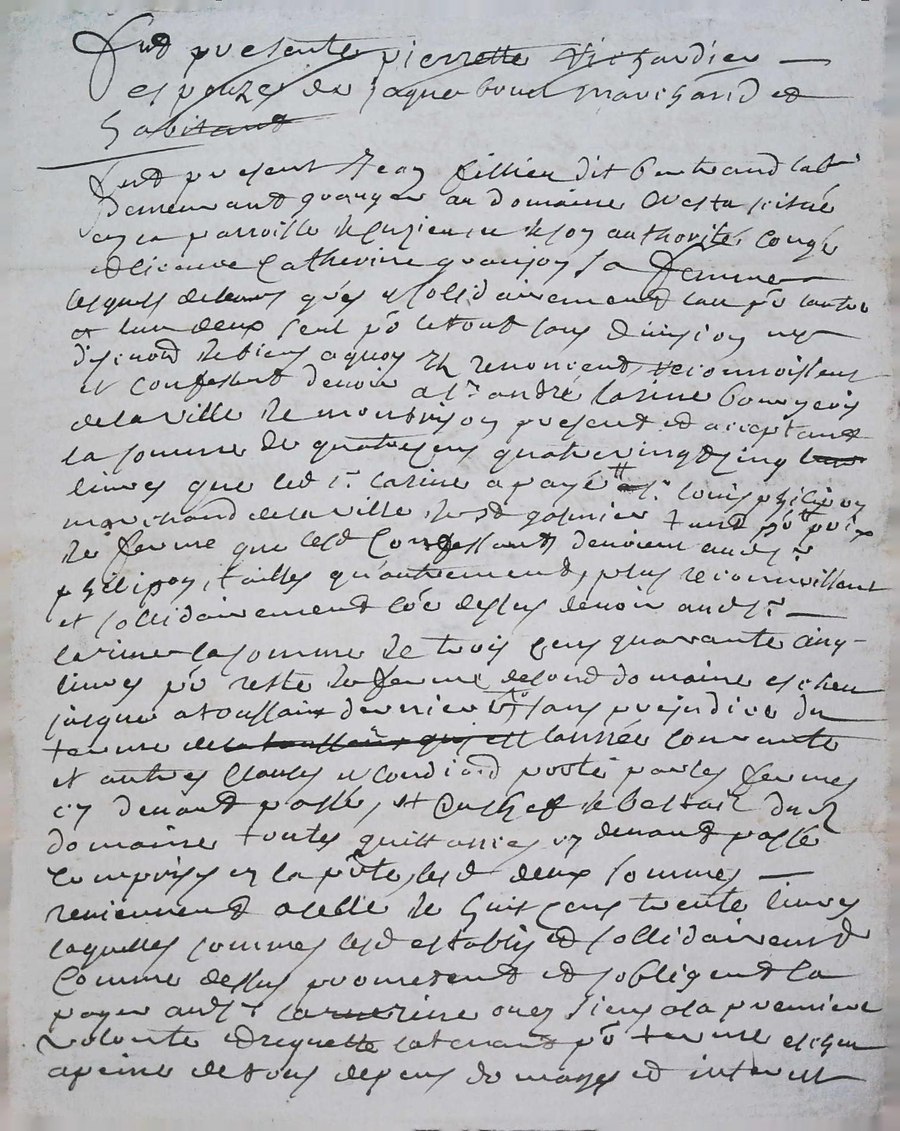 Fut presente pierrette
espouze de Jaque marchand et
habitant
fut present Jean fillieu dit bertrand lab
demeurant granger au domaine situé
en la parroisse de et de son authorité congé
et licence Catherine granjon sa femme
lesquels de leurs grés et sollidairement lun po lautre
et lun deux seul po le tout sans division ny
discution de biens a quoy ils renoncent reconnoissent
et confessent devoir a sr andré larine bourgeois
de la ville de montbrison present et acceptant
la somme de quatre cens quatre vingt cinq
livres que led sr larine a payé a sr louis phélipon
marchand de la ville de st galmier tant po prix
de ferme que lesd confessants devoient aud sr
phélipon, tailles qu'autrement, plus reconnoissent
et sollidairement co'e dessus devoir aud sr
larine la somme de trois cens quarante cinq
livres po reste de ferme dud domaine escheu
jusques a toussaint dernier sans prejudice du
terme de la toussaint qui est lannée courante
et autres clauses et condi'ons porté par les fermes
cy devant passé, et du chef de bestail dud
domaine toutes quittances cy devant passé
comprises en la p'nte, lesd deux sommes
reviennent a celle de huit cens trente livres
laquelles sommes lesd establis et sollidairement
comme dessus promettent et s'obligent la
payer aud sr larine ou es siens a la premiere
volonté et requette po terme escheu
a peine de tous despens domages et interest